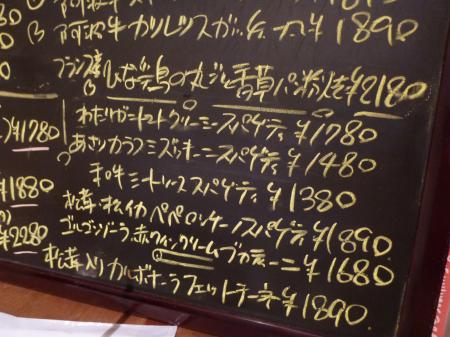 阿波牛カルパッチョ ¥1890
フランス産ひな鳥の丸ごと香草パン粉焼¥2180
わたりガニトマトクリームスパゲティ ¥1780
あさりカラスミズッキーニスパゲティ ¥1480
和牛ミートソーススパゲティ ¥1380
松茸・松イカペペロンチーノスパゲティ ¥1890
ゴルゴンゾーラ赤ワインクリームブカティーニ ¥1680
松茸入りカルボナーラフェットチーネ ¥1890
)¥1780
¥1880
¥2280